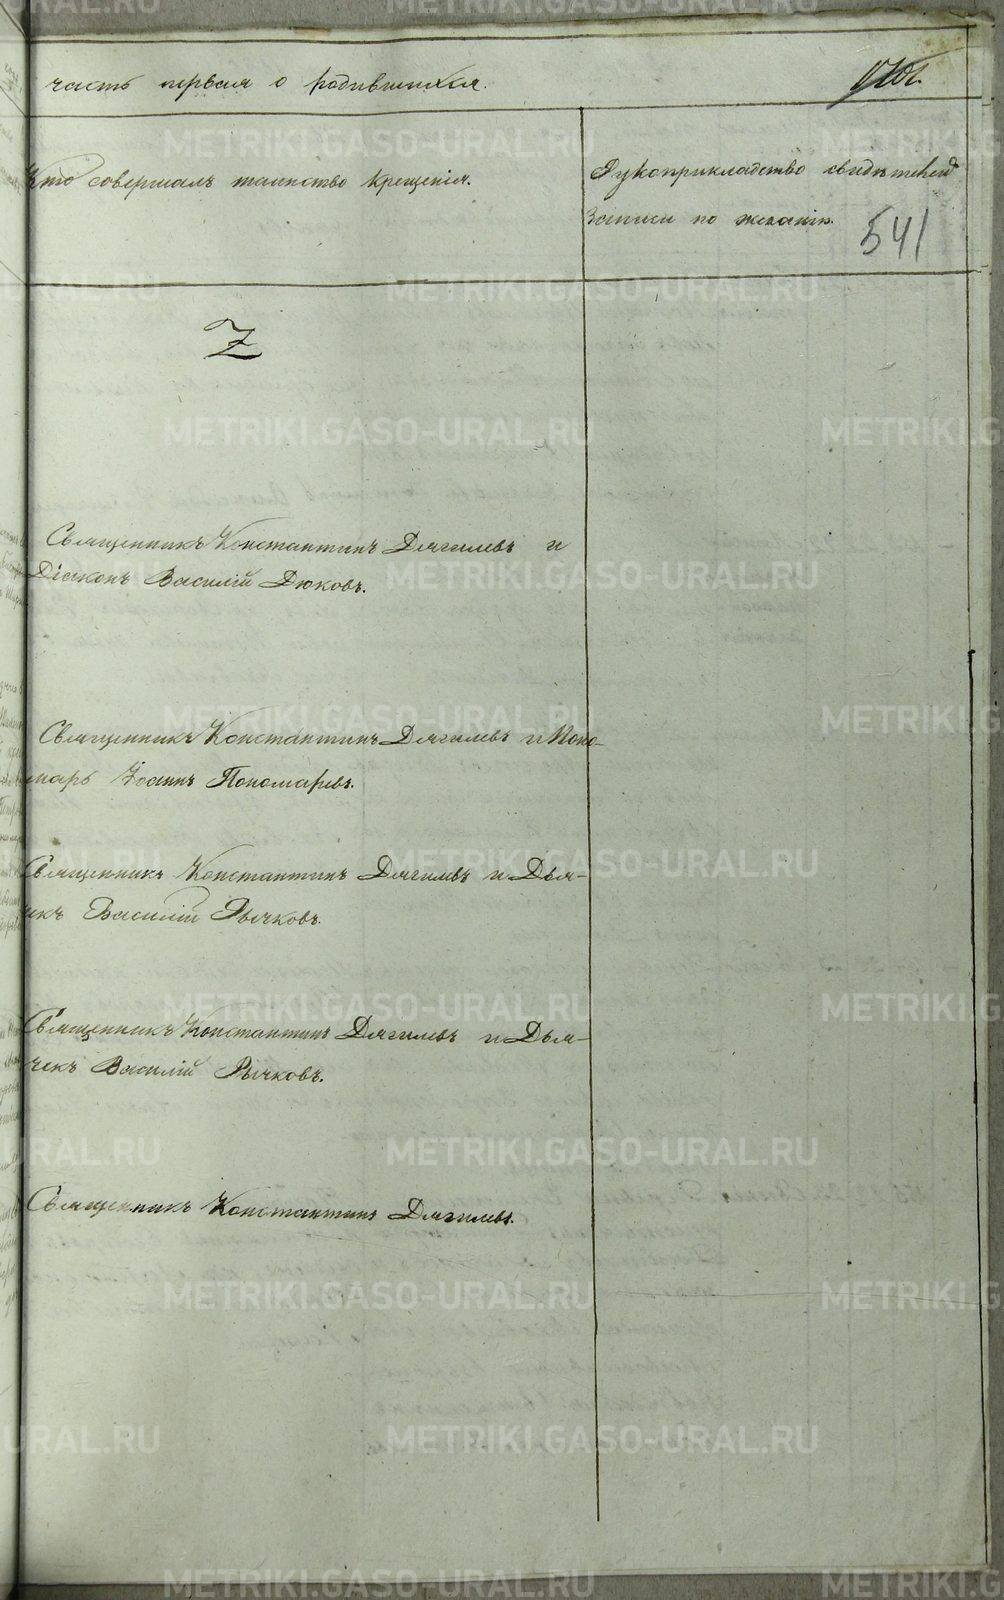 часть первая о родившихся.
541
Кто совершалъ таинство крещенія.
Рукоприкладство свидѣтелей
записи по желанію.
7
Священникъ Константинъ Дягилевъ и
Діаконъ Василій Дюковъ.
Священникъ Константинъ Дягилевъ и Поно-
марь Іоаннъ Пономаревъ.
Священникъ Константинъ Дягилевъ и Дья-
чекъ Василій Рычковъ.
Священникъ Константинъ Дягилевъ и Дья-
чекъ Василій Рычковъ.
Священникъ Константинъ Дягилевъ.
METRIKI.GASO-URAL.RU